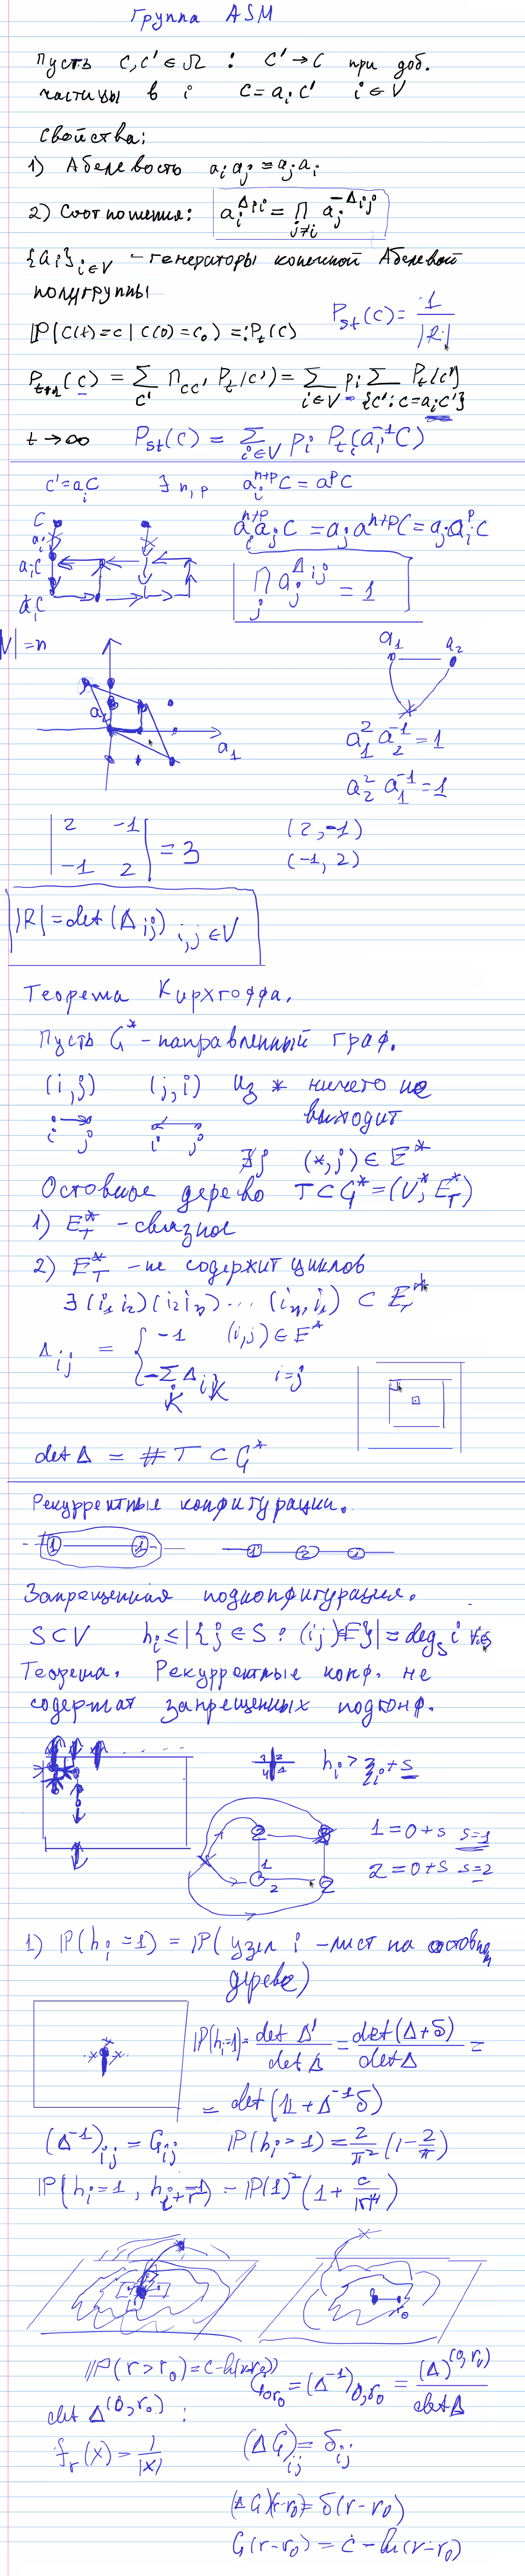 Группа ASM
Пусть C, C' ∈ Ω : C' → C при доб.
частицы в i C = a_i C' i ∈ V
Свойства:
1) Абелевость a_i a_j = a_j a_i
2) Соотношения: a_i^{Δ_{ii}} = ∏_{j≠i} a_j^{-Δ_{ij}}
{a_i}_{i∈V} - генераторы конечной Абелевой
полугруппы
P_{st}(C) = 1/|R|
P(C(t)=C | C(0)=C_0) =: P_t(C)
P_{t+1}(C) = Σ_{C'} Π_{CC'} P_t(C') = Σ_{i∈V} p_i Σ_{{C': C=a_iC'}} P_t(C')
t→∞ P_{st}(C) = Σ_{i∈V} p_i P_t(a_i^{-1}C)
C' = a_i C ∃ n, p a_i^{n+p} C = a^p C
C
a_i
a_i^{n+p} a_j C = a_j a^{n+p} C = a_j a_i^p C
a_i C
∏_j a_j^{Δ_{ij}} = 1
|V| = n
a_1 a_2
a_1
a_1^2 a_2^{-1} = 1
a_2^2 a_1^{-1} = 1
|2 -1|
|-1 2| = 3
(2, -1)
(-1, 2)
|R| = det(Δ_{ij})_{i,j∈V}
Теорема Кирхгоффа.
Пусть G* - направленный граф.
(i,j) (j,i) Из * ничего не
выходит
i j i j
∄j (*,j) ∈ E*
Остовное дерево T ⊂ G* = (V*, E_T*)
1) E_T* - связное
2) E_T* - не содержит циклов
∃ (i_1 i_2)(i_2 i_3) ... (i_n, i_1) ⊂ E_T*
Δ_{ij} = { -1 (i,j) ∈ E*
-Σ_K Δ_{iK} i=j
det Δ = # T ⊂ G*
Рекуррентные конфигурации.
1 1 1 2 1
Запрещенная подконфигурация.
S⊂V h_i ≤ |{j ∈ S : (ij) ∈ E}| = deg_S i ∀i∈S
Теорема. Рекуррентные конф. не
содержат запрещенных подконф.
h_i > ξ_i + s
2
1 = 0 + s s=1
1
2 = 0 + s s=2
2 2
1) P(h_i = 1) = P(узел i - лист на остовном
дереве)
P(h_i=1) = det Δ' / det Δ = det(Δ+δ) / det Δ =
= det(1 + Δ^{-1}δ)
(Δ^{-1})_{ij} = G_{ij} P(h_i > 1) = 2/π² (1 - 2/π)
P(h_i=1, h_{i+r}=1) - P(1)² (1 + c/|r|⁴)
r_0
P(r > r_0) = c - ln(r-r_0))
G_{0r_0} = (Δ^{-1})_{0,r_0} = (Δ)^{(0,r_0)} / det Δ
det Δ^{(0,r_0)} :
f_r(x) = 1/|x|
(ΔG)_{ij} = δ_{ij}
(ΔG)(r-r_0) = δ(r-r_0)
G(r-r_0) = c - ln(r-r_0)